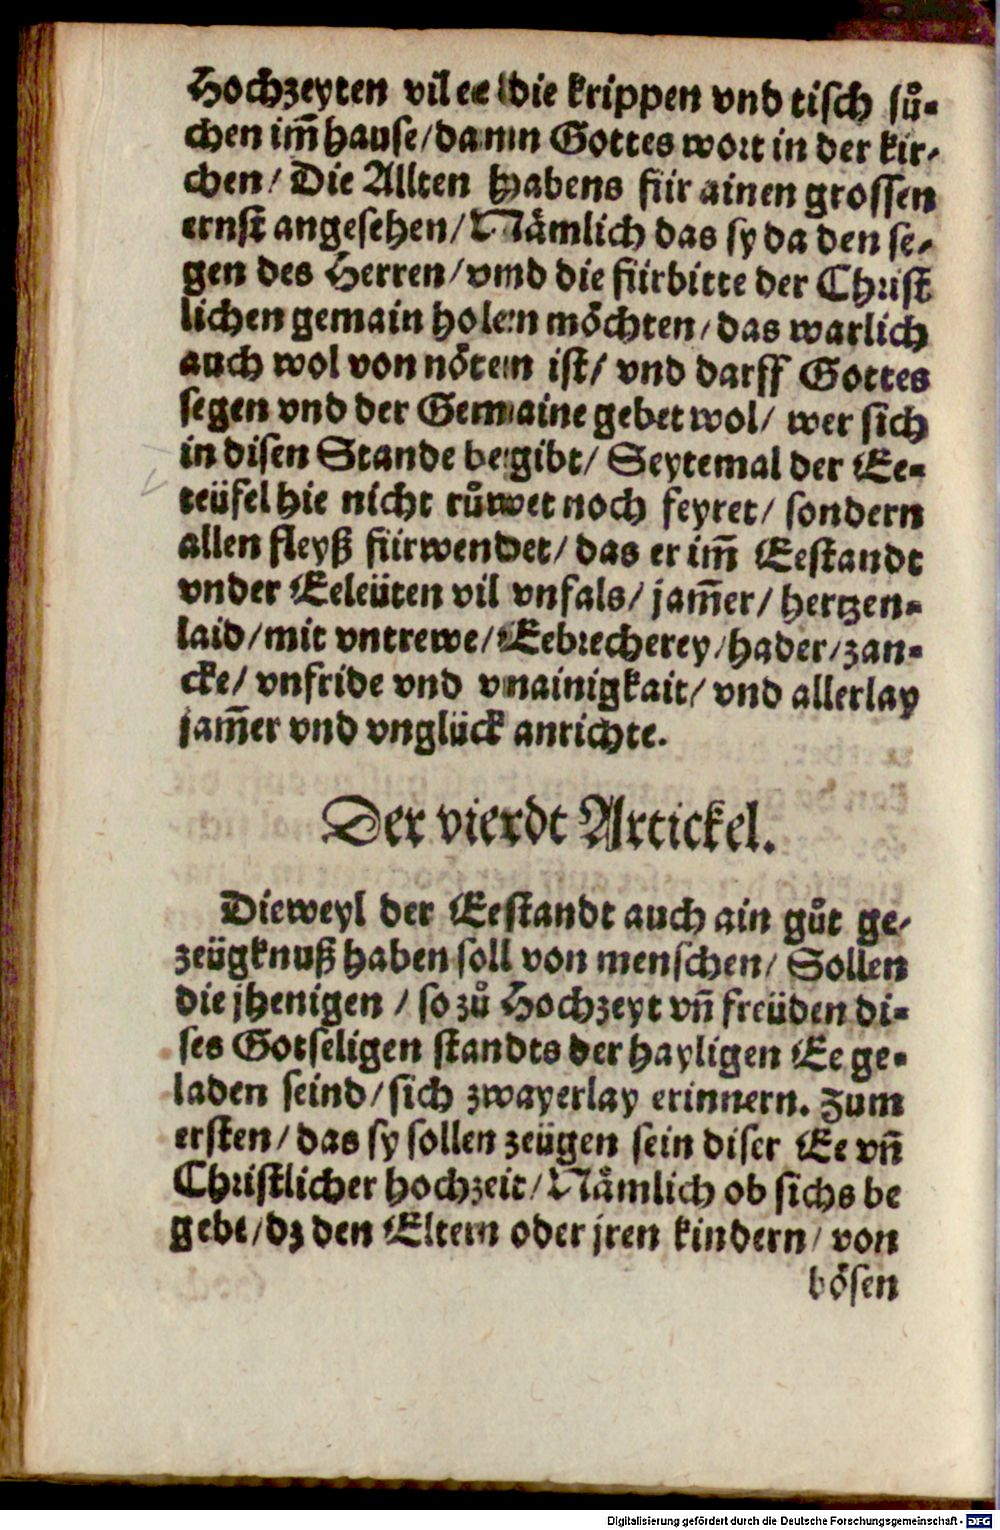 Hochzeyten vil ee die krippen vnd tisch sů-
chen im̃ hause/dann Gottes wort in der kir-
chen/ Die Allten habens für ainen grossen
ernst angesehen/Nämlich das sy da den se-
gen des Herren/vnd die fürbitte der Christ
lichen gemain holen möchten/das warlich
auch wol von nöten ist/ vnd darff Gottes
segen vnd der Gemaine gebet wol/ wer sich
in disen Stande begibt/ Seytemal der Ee-
teüfel hie nicht růwet noch feyret/ sondern
allen fleyß fürwendet/ das er im̃ Eestandt
vnder Eeleüten vil vnfals/ jam̃er/ hertzen-
laid/mit vntrewe/Eebrecherey/hader/zan-
cke/ vnfride vnd vnainigkait/ vnd allerlay
jam̃er vnd vnglück anrichte.
Der vierdt Artickel.
Dieweyl der Eestandt auch ain gůt ge-
zeügknuß haben soll von menschen/ Sollen
die jhenigen / so zů Hochzeyt vñ freüden di-
ses Gotseligen standts der hayligen Ee ge-
laden seind/sich zwayerlay erinnern. Zum
ersten/das sy sollen zeügen sein diser Ee vñ
Christlicher hochzeit/Nämlich ob sichs be
gebe/dz den Eltern oder jren kindern/ von
bösen
Digitalisierung gefördert durch die Deutsche Forschungsgemeinschaft - DFG